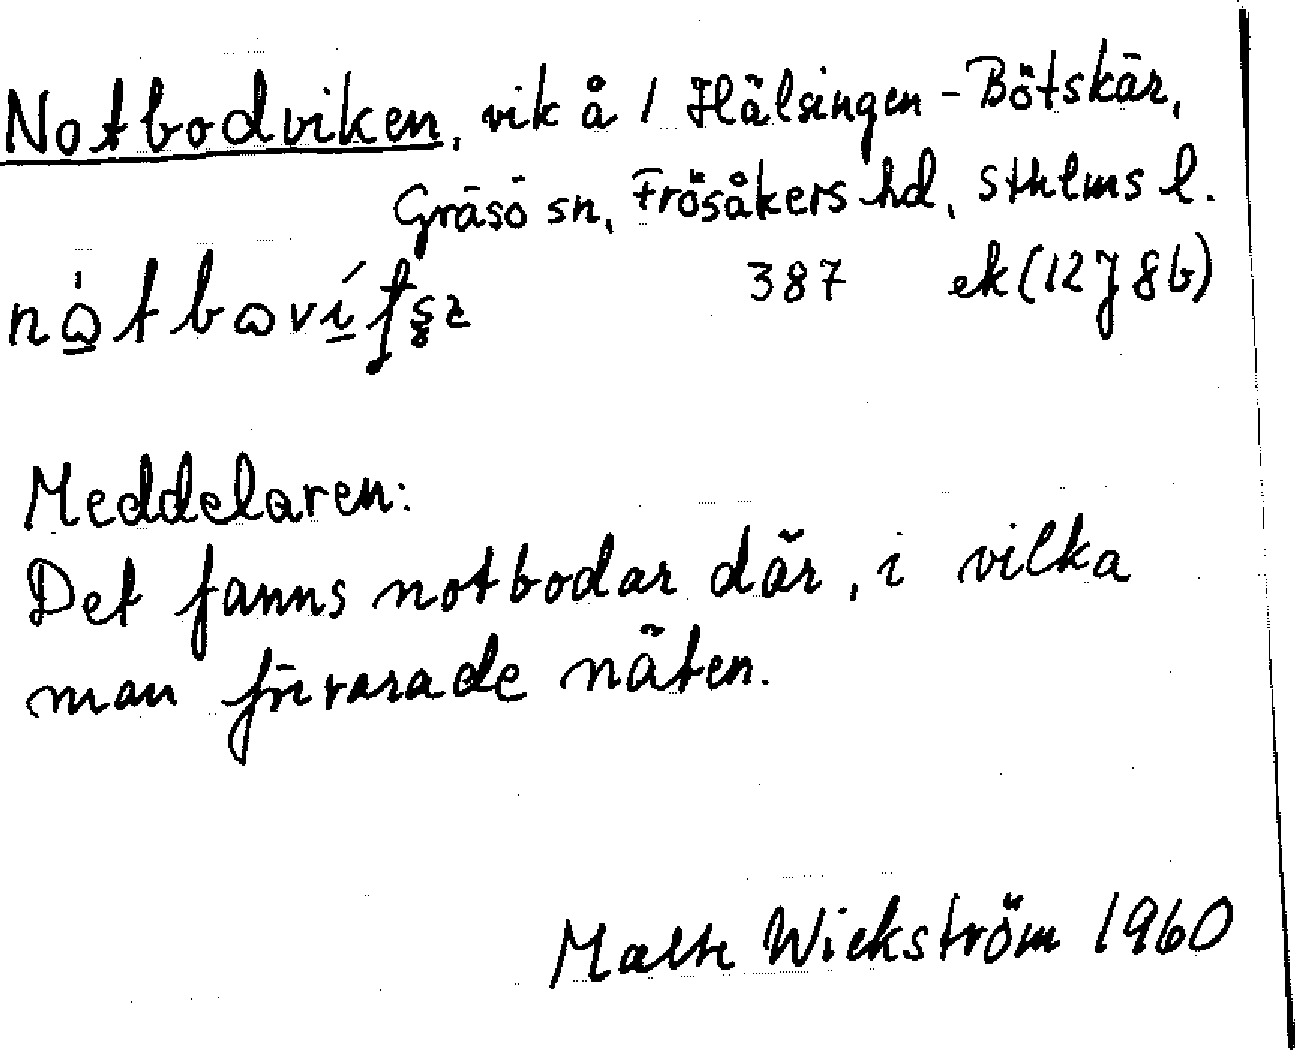 Notbodviken, vik å 1 Hälsingen-Bötskär,
Gräsö sn, Frösåkers hd, Sthlms l.
387 ek (12J 8b)
Meddelaren:
Det fanns notbodar där, i vilka
man förvarade näten.
Malte Wickström 1960